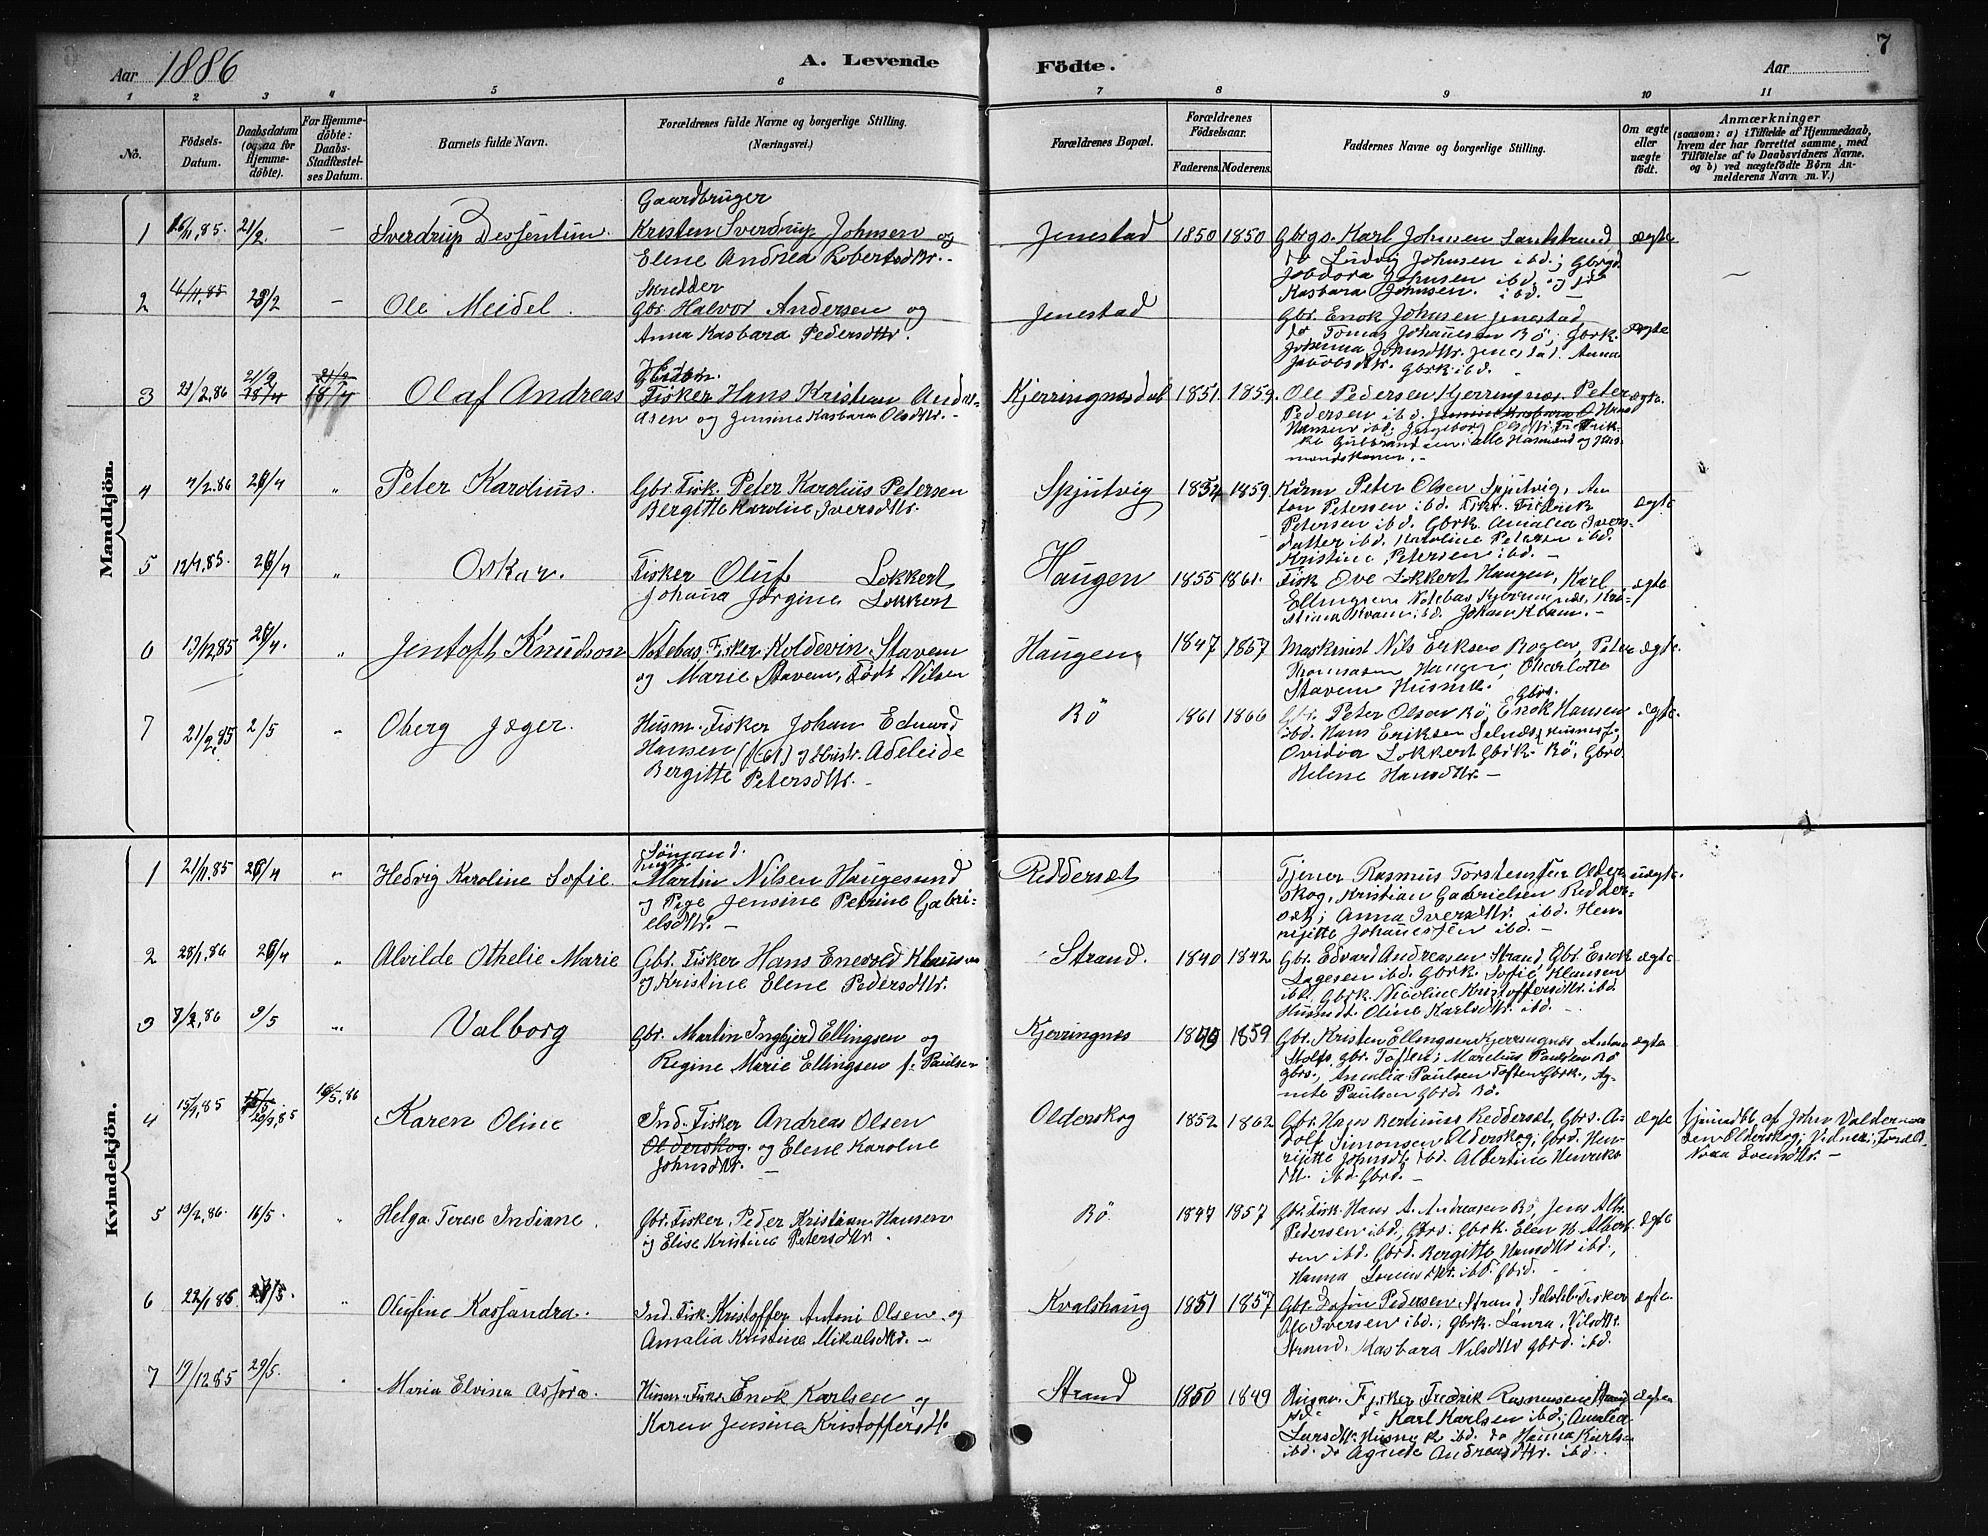 Aar 1886
A. Levende Födte.
7
Aar
1 2 3 4 5 6 7 8 9 10 11
No.
Födsels-Datum.
Daabsdatum (ogsaa for Hjemmedöbte).
For Hjemmedöbte: Daabs-Stadfæstelses Datum.
Barnets fulde Navn.
Forældrenes fulde Navne og borgerlige Stilling. (Næringsvei.)
Forældrenes Bopæl.
Forældrenes Födselsaar.
Faderens. Moderens.
Faddernes Navne og borgerlige Stilling.
Om ægte eller uægte födt.
Anmærkninger
(saasom: a) i Tilfælde af Hjemmedaab, hvem der har forrettet samme, med Tilföielse af to Daabsvidners Navne, og b) ved uægtefödte Börn Anmelderens Navn m. V.)
Mandkjön.
1 21/2. – Sverdrup
Gaardbruger
Kristen Sverdrup Johnsen og
Elene Andrea Robertsdtr.
Jenestad 1850 1850
Gbrgs. Karl Johnsen ægte
do Ludvig Johnsen ibd.; Gbrgd.
Johnsen ibd. og
Kasbara Johnsen. ibd. –
2 – Ole Meidel.
Gbr. Halvor Andersen og
Anna Kasbara Pedersdtr.
Jenestad
Gbr. Enok Johnsen Jenestad
do Tomas Rö; Gbrk. ægte
Johanna Johnsdtr. Jenestad. Anna
Jakobsdtr. Gbrk. ibd.
3 21/2.86 21/2 18/4 Olaf Andreas
Fisker Hans Kristian
og Jensine Kasbara Olsdtr. –
Kjerringnesdal 1851 1859.
Ole Pedersen Kjerringnes. Peter ægte.
Pedersen ibd. Hans
Hansen ibd; Ingeborg
Gulbrandsen. alle Husmænd og
4 4/2.86 26/4 „ Peter Karolius.
Gbr. Fisk. Peter Karolius Petersen
Bergitte Karoline Iversdtr.
Spjutvig 1854 1859.
Peter Olsen Spjutvig, An
ton Petersen ibd. Fredrik ægte
Petersen ibd. Gbrk Amalia Ivers-
datter ibd. Karoline Petersen ibd.
Kristine Petersen ibd. –
5 12/4.85. 26/4 „ Oskar.
Fisker Oluf Lokkert
Johana Jörgine Lokkert
Haugen 1855 1861.
Fisk Ove Lokkert Haugen, Karl ægte
Ellingsen Notebas Kjerringnes,
ibd. Johan
6 13/12,85 26/4. „ Jentoft Knudson
Notebas. Fisker Koldevin Staven
og Marie Staven, Födt Nilsen
Haugen 1847 1857
Maskinist Nils Eriksen Rogen, Peter ægte.
Thomassen Haugen; Charlotte
Staven Husmk.
7 21/2.85 2/5 „ Oberg Jæger.
Husm. Fisker Johan Edvard
Hansen og Hustr. Adeleide
Bergitte Petersdtr. –
Rö 1861 1866
Gbr. Peter Olsen Rö, Gbrs. Enok Hansen ægte.
ibd. Hans Eriksen Selnæs,
Ovidia Lokkert Gbrk. Rö, Gbrd.
Helene Hansdtr. –
Kvindekjön.
1 21/11.85 26/4 „ Hedvig Karoline Sofie.
Sömand.
Martin Nilsen Haugesund
og Pige Jensine Petrine Gabri-
elsdtr. –
Reddersæt
Tjener Rasmus Torstensen Older uægte
skog, Kristian Gabrielsen Redder-
sæt; Anna Iversdtr. ibd. Hen
rijitte Johanessen ibd. –
2 28/1.86 26/4 „ Alvilde Othelie Marie
Gbr. Fisker Hans Enevold Klausen
og Kristine Elene Pedersdtr.
Strand. 1840 1842
Gbr. Edvard Andreasen Strand, Gbr. Enok ægte
Lagesen ibd. Gbrk. Sofie Klausen
ibd. Gbrk. Nicoline Kristoffersdtr. ibd.
Oline Karlsdtr. ibd.
3 8/2.86 9/5 „ Valborg
Gbr. Martin Ingbjerd Ellingsen og
Regine Marie Ellingsen f. Paulsen
Kjerringnæs 1859
Gbr. Kristen Ellingsen Kjerringnæs Anton ægte
Stolfs, gbr. Toften; Marelius Paulsen Rö
gbrs., Amalia Paulsen Toften Gbrk., Ag-
nete Paulsen Gbrd Rö.
4 15/9.85 16/5.86 Karen Oline
Ind. Fisker Andreas Olsen
Olderskog. og Elene Karoline
Johnsdtr. –
Olderskog 1852 1862
Gbr. Hans Bertinus Reddersæt, Gbrs. A- ægte
dolf Simonsen Olderskog; Gbrd. Hen-
rijitte Johnsdt. ibd. Albertine Henriks
dtr. ibd. Gbrd. –
Hjemdöbt af John Valdemar
sen Olderskog; Vidner; Foræld.
5 13/2.86. 16/5. Helga Terese Indiane.
Gbr. Fisker. Peder Kristian Hansen
og Elise Kristine Petersdtr.
Rö. 1847 1857
Gbr. Fisk. Hans A. Andreasen Rö, Jens Alb.
Pedersen ibd. Gbrs. Gbrk. Elen H. Albert- ægte
sen ibd. Gbrd. Bergitte Hansdtr ibd,
Hanna ibd. Gbrd.
6 22/1.85. Olufine Kassandra.
Ind. Fisk. Kristoffer Antoni Olsen og
Amalia Kristine Mikalsdtr. –
Kvalshaug 1851 1857
Gbr. Pedersen Strand, Fisker ægte.
Ole Iversen ibd.; Gbrk. Laura Nilsdtr.
Strand, Kasbara Nilsdtr Gbrd. ibd.
7 19/12.85 29/5. Maria Elvina Asfora.
Husm. Fisk. Enok Karlsen og
Karen Jensine Kristoffersdt.
Strand 1850 1849
Husm. Fisker Fredrik Rasmussen Strand ægte
do do Karl Karlsen ibd; Amalia
Larsdtr. Husmk ibd. do Hanna Karlsen
ibd. do Agnete Andreasdtr. ibd.